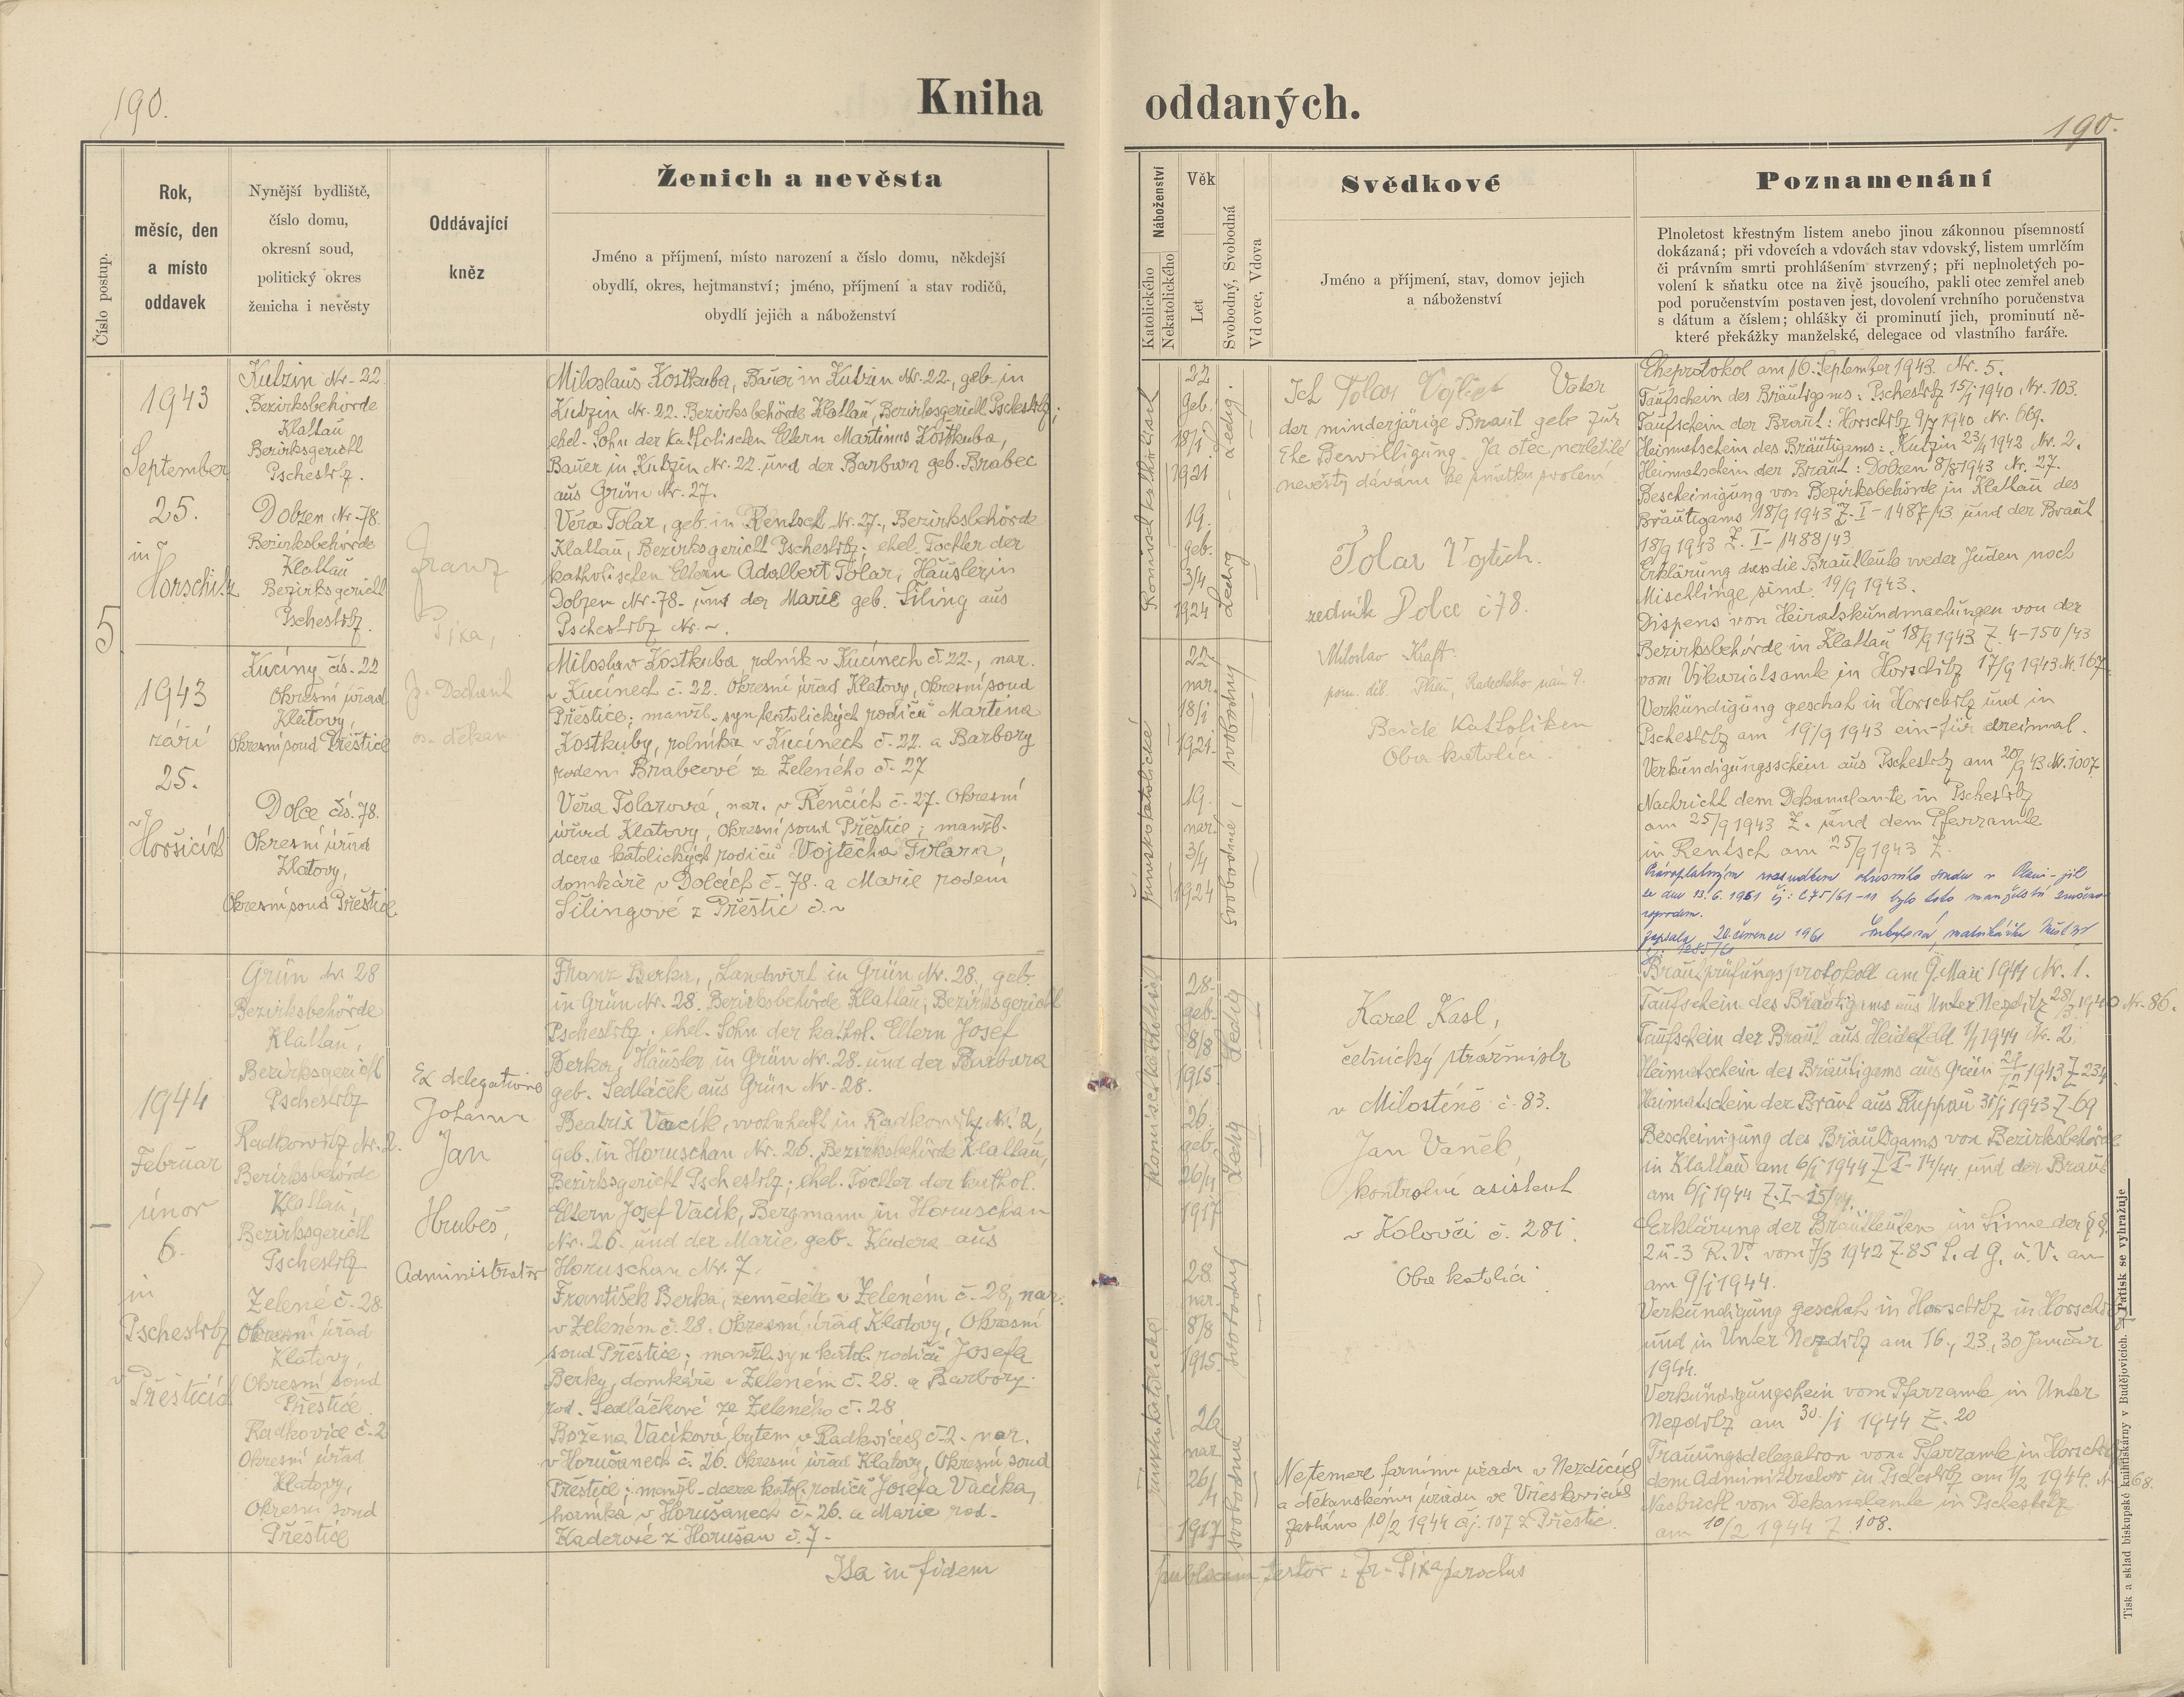 190.
Kniha oddaných.
190.
Číslo postup.
Rok,
měsíc, den
a místo
oddavek
Nynější bydliště,
číslo domu,
okresní soud,
politický okres
ženicha i nevěsty
Oddávající
kněz
Ženich a nevěsta
Jméno a příjmení, místo narození a číslo domu, někdejší
obydlí, okres, hejtmanství; jméno, příjmení a stav rodičů,
obydlí jejich a náboženství
Náboženství
Katolického
Nekatolického
Věk
Let
Svobodný, Svobodná
Vdovec, Vdova
Svědkové
Jméno a příjmení, stav, domov jejich
a náboženství
Poznamenání
Plnoletost křestným listem anebo jinou zákonnou písemností
dokázaná; při vdovcích a vdovách stav vdovský, listem umrlčím
či právním smrti prohlášením stvrzený; při neplnoletých po-
volení k sňatku otce na živě jsoucího, pakli otec zemřel aneb
pod poručenstvím postaven jest, dovolení vrchního poručenstva
s dátum a číslem; ohlášky či prominutí jich, prominutí ně-
které překážky manželské, delegace od vlastního faráře.
5
1943
September
25.
in
Horschitz
1943
září
25.
v
Horšicích
Kutzin Nr. 22
Bezirksbehörde
Klattau
Bezirksgericht
Pschestitz.
Dolzen Nr. 78.
Bezirksbehörde
Klattau
Bezirksgericht
Pschestitz.
Kucíny čís. 22
Okresní úřad
Klatovy,
Okresní soud Přeštice
Dolce čís. 78.
Okresní úřad
Klatovy,
Okresní soud Přeštice
Franz
Pixa,
p. Dechant
os. děkan
Miloslaus Kostkuba, Bauer in Kutzin Nr. 22., geb. in
Kutzin Nr. 22. Bezirksbehörde Klattau, Bezirksgericht Pschestitz;
ehel. Sohn der katholischen Eltern Martinus Kostkuba,
Bauer in Kutzin Nr. 22 und der Barbara geb. Brabec
aus Grün Nr. 27.
Věra Tolar, geb. in Rentsch Nr. 27., Bezirksbehörde
Klattau, Bezirksgericht Pschestitz; ehel. Tochter der
katholischen Eltern Adalbert Tolar, Häusler in
Dolzen Nr. 78. und der Marie geb. Šiling aus
Pschestitz Nr. ~.
Miloslav Kostkuba, rolník v Kucínech č. 22., nar.
v Kucínech č. 22. Okresní úřad Klatovy, Okresní soud
Přeštice; manžl. syn katolických rodičů Martina
Kostkuby, rolníka v Kucínech č. 22. a Barbory
rodem Brabcové ze Zeleného č. 27
Věra Tolarová, nar. v Řenčích č. 27. Okresní
úřad Klatovy, Okresní soud Přeštice; manžl.
dcera katolických rodičů Vojtěcha Tolara,
domkáře v Dolcích č. 78. a Marie rodem
Šilingové z Přeštic č. ~
Römisch katholisch
římskokatolické
22
geb.
18/1
1921
19.
geb.
3/4
1924
22
nar.
18/1
1921.
19.
nar.
3/4
1924
Ledig.
Ledig
svobodný
svobodná
Ich Tolar Vojtěch Vater
der minderjärige Braut gebe zur
Ehe Bewilligung. Já otec nezletilé
nevěsty dávám ke sňatku svolení.
Tolar Vojtěch.
zedník Dolce č 78.
Miloslav Kraft.
Beide Katholiken
Oba katolíci.
Eheprotokol am 16. September 1943. Nr. 5.
Taufschein des Bräutigams: Pschestitz 15/1 1940 Nr. 103.
Taufschein der Braut: Horschitz 9/7 1940 Nr. 669.
Heimatschein des Bräutigams: Kutzin 23/4 1942 Nr. 2.
Heimatschein der Braut: Dolzen 8/8 1943 Nr. 27.
Bescheinigung von Bezirksbehörde in Klattau des
Bräutigams 18/9 1943 Z. I-1487/43 und der Braut
18/9 1943 Z. I-1488/43
Erklärung dass die Brautleute weder Juden noch
Mischlinge sind. 19/9 1943.
Dispens von Heiratskundmachungen von der
Bezirksbehörde in Klattau 18/9 1943 Z. 4-150/43
vom Vikariatsamte in Horschitz 17/9 1943 Nr. 167.
Verkündigung geschah in Horschitz und in
Pschestitz am 19/9 1943 ein- für dreimal.
Verkündigungsschein aus Pschestitz am 20/9 43 Nr. 1007.
Nachricht dem Dekanalamte in Pschestitz
am 25/9 1943 Z. und dem Pfarramte
in Rentsch am 25/9 1943 Z.
Pravoplatným rozsudkem okresního soudu v Plzni-jih
ze dne 13. 6. 1961 čj: C75/61-11 bylo toto manželství zrušeno
rozvodem.
Zapsala 20. července 1961
1944
Februar
únor
6.
in
Pschestitz
v
Přešticích
Grün Nr 28
Bezirksbehörde
Klattau,
Bezirksgericht
Pschestitz
Radkowitz Nr. 2.
Bezirksbehörde
Klattau,
Bezirksgericht
Pschestitz
Zelené č. 28
Okresní úřad
Klatovy,
Okresní soud
Přeštice.
Radkovice č. 2
Okresní úřad
Klatovy,
Okresní soud
Přeštice
Ex delegatione
Johann
Jan
Hrubeš,
Administrator
Franz Berka, Landwirt in Grün Nr. 28, geb.
in Grün Nr. 28. Bezirksbehörde Klattau, Bezirksgericht
Pschestitz; ehel. Sohn der kathol. Eltern Josef
Berka, Häusler in Grün Nr. 28. und der Barbara
geb. Sedláček aus Grün Nr. 28.
Beatrix Vacík, wohnhaft in Radkowitz Nr. 2,
geb. in Horuschan Nr. 26. Bezirksbehörde Klattau,
Bezirksgericht Pschestitz; ehel. Tochter der kathol.
Eltern Josef Vacík, Bergmann in Horuschan
Nr. 26. und der Marie geb. Kadera aus
Horuschan Nr. 7.
František Berka, zemědělec v Zeleném č. 28, nar.
v Zeleném č. 28. Okresní úřad Klatovy, Okresní
soud Přeštice; manžl. syn katol. rodičů Josefa
Berky, domkáře v Zeleném č. 28. a Barbory
rod. Sedláčkové ze Zeleného č. 28
Božena Vacíková, bytem v Radkovicích č. 2. nar.
v Horušanech č. 26. Okresní úřad Klatovy, Okresní soud
Přeštice; manžl. dcera katol. rodičů Josefa Vacíka,
horníka v Horušanech č. 26. a Marie rod.
Kaderové z Horušan č. 7.
Römisch katholisch
římskokatolické
28.
geb.
8/8
1915.
26.
geb.
26/4
1917
28.
nar.
8/8
1915.
26
nar
26/4
1917
Ledig
Ledig
svobodný
svobodná
Karel Kasl,
četnický strážmistr
v Milostíně č. 83.
Jan Vaněk,
kontrolní asistent
v Kolovči č. 281.
Oba katolíci
farnímu úřadu v Nezdicích
a děkanskému úřadu ve Vřeskovicích
zasláno 10/2 1944 čj. 107 z Přeštic.
Brautprüfungsprotokoll am 9. 1944 Nr. 1.
Taufschein des Bräutigams aus Unter Nezditz 28/3 1940 Nr. 86.
Taufschein der Braut aus 1/1 1944 Nr. 2.
Heimatschein des Bräutigams aus Grün 1943 Z. 234
Heimatschein der Braut aus Ruppau 31/1 1943 Z. 69
Bescheinigung des Bräutigams von Bezirksbehörde
in Klattau am 6/1 1944 Z I-14/44 und der Braut
am 6/1 1944 Z. I-15/44.
Erklärung der Brautleuten im Sinne der §§.
2 u. 3 R. V. vom 7/3 1942 Z. 85 S. d G. u. V. an
am 9/1 1944.
Verkündigung geschah in Horschitz in Horschitz
und in Unter Nezditz am 16., 23., 30 Januar
1944.
Verkündigungschein vom Pfarramte in Unter
Nezditz am 30./1 1944 Z. 20
Trauungsdelegation vom Pfarramte in Horschitz
dem Administrator in Pschestitz am 1/2 1944. Nr 68.
Nachricht vom Dekanalamte in Pschestitz
am 10/2 1944 Z. 108.
Ita in fidem publicam testor: Fr. Pixa parochus
Tisk a sklad biskupské knihtiskárny v Budějovicích. Patisk se vyhražuje